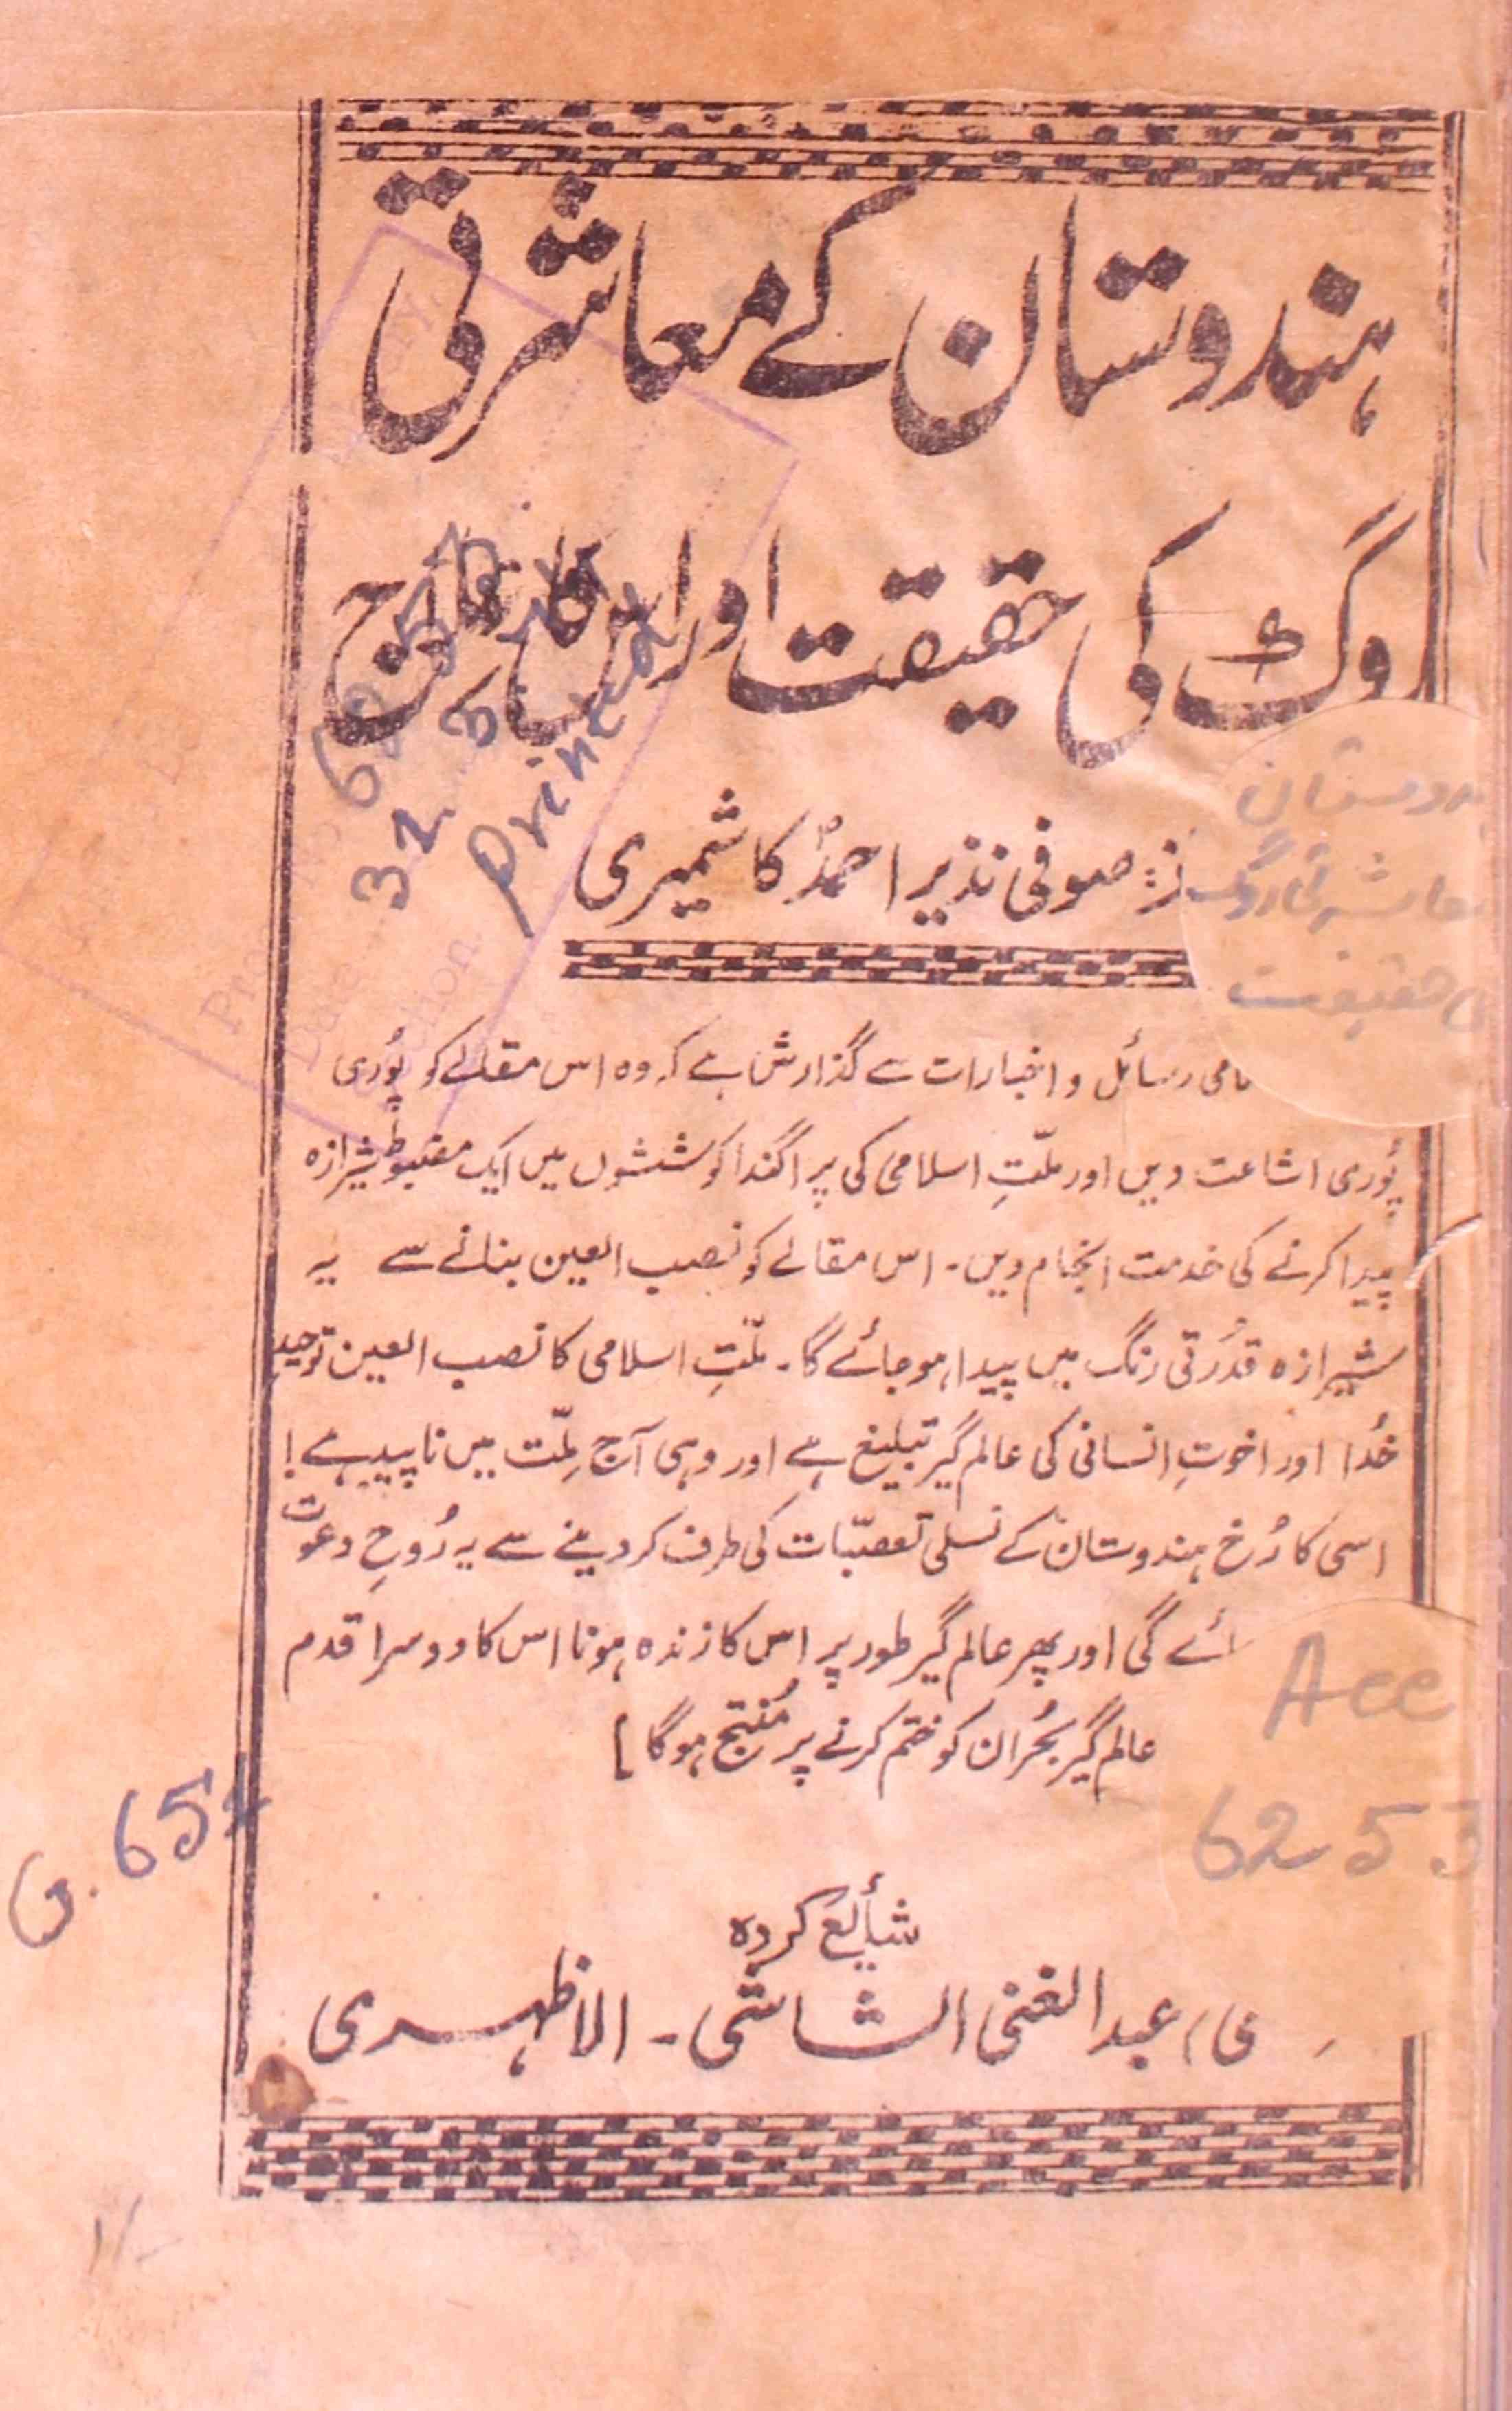 ہندوستان کے معاشرتی
روگ کی حقیقت اور اس کا علاج
از: صوفی نذیر احمدؐ کاشمیری
رسائل و اخبارات سے گذارش ہے کہ وہ اس مقالے کو پُوری
پُوری اشاعت دیں اور ملّتِ اسلامی کی پراگندا کوششوں میں ایک مضبوط شیرازہ
پیدا کرنے کی خدمت انجام دیں۔ اس مقالے کو نصب العین بنانے سے یہ
شیرازہ قدُرتی رنگ میں پیدا ہو جائے گا۔ ملّتِ اسلامی کا نصب العین توحیدِ
خُدا اور اخوتِ انسانی کی عالم گیر تبلیغ ہے اور وہی آج مِلّت میں ناپید ہے!
اسی کا رُخ ہندوستان کے نسلی تعصبّات کی طرف کر دینے سے یہ رُوحِ دعوت
گی اور پھر عالم گیر طور پر اس کا زندہ ہونا اس کا دوسرا قدم
عالم گیر بحُران کو ختم کرنے پر مُنتج ہوگا]
شائع کردہ
عبدالغنی الشاشی۔ الاظہری
ہندوستان
معاشرتی روگ
کی حقیقت
Acc
6253
G. 651
Printed
Date
1/-